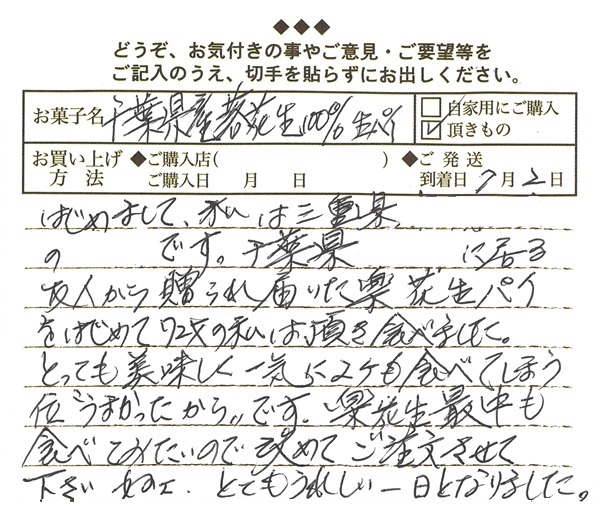 ◆◆◆
どうぞ、お気付きの事やご意見・ご要望等を
ご記入のうえ、切手を貼らずにお出しください。
お菓子名 千葉県産落花生100%生パイ □自家用にご購入
☑頂きもの
お買い上げ方法 ◆ご購入店( ) ◆ご発送
ご購入日 月 日 到着日 7月2日
はじめまして、私は三重県
の です。千葉県 に居る
友人から贈られ届いた楽花生パイ
をはじめて72才の私は、頂き食べました。
とっても美味しく一気に2ケも食べてしまう
位"うまかったから"です。楽花生最中も
食べてみたいので改めてご注文させて
下さい とてもうれしい一日となりました。